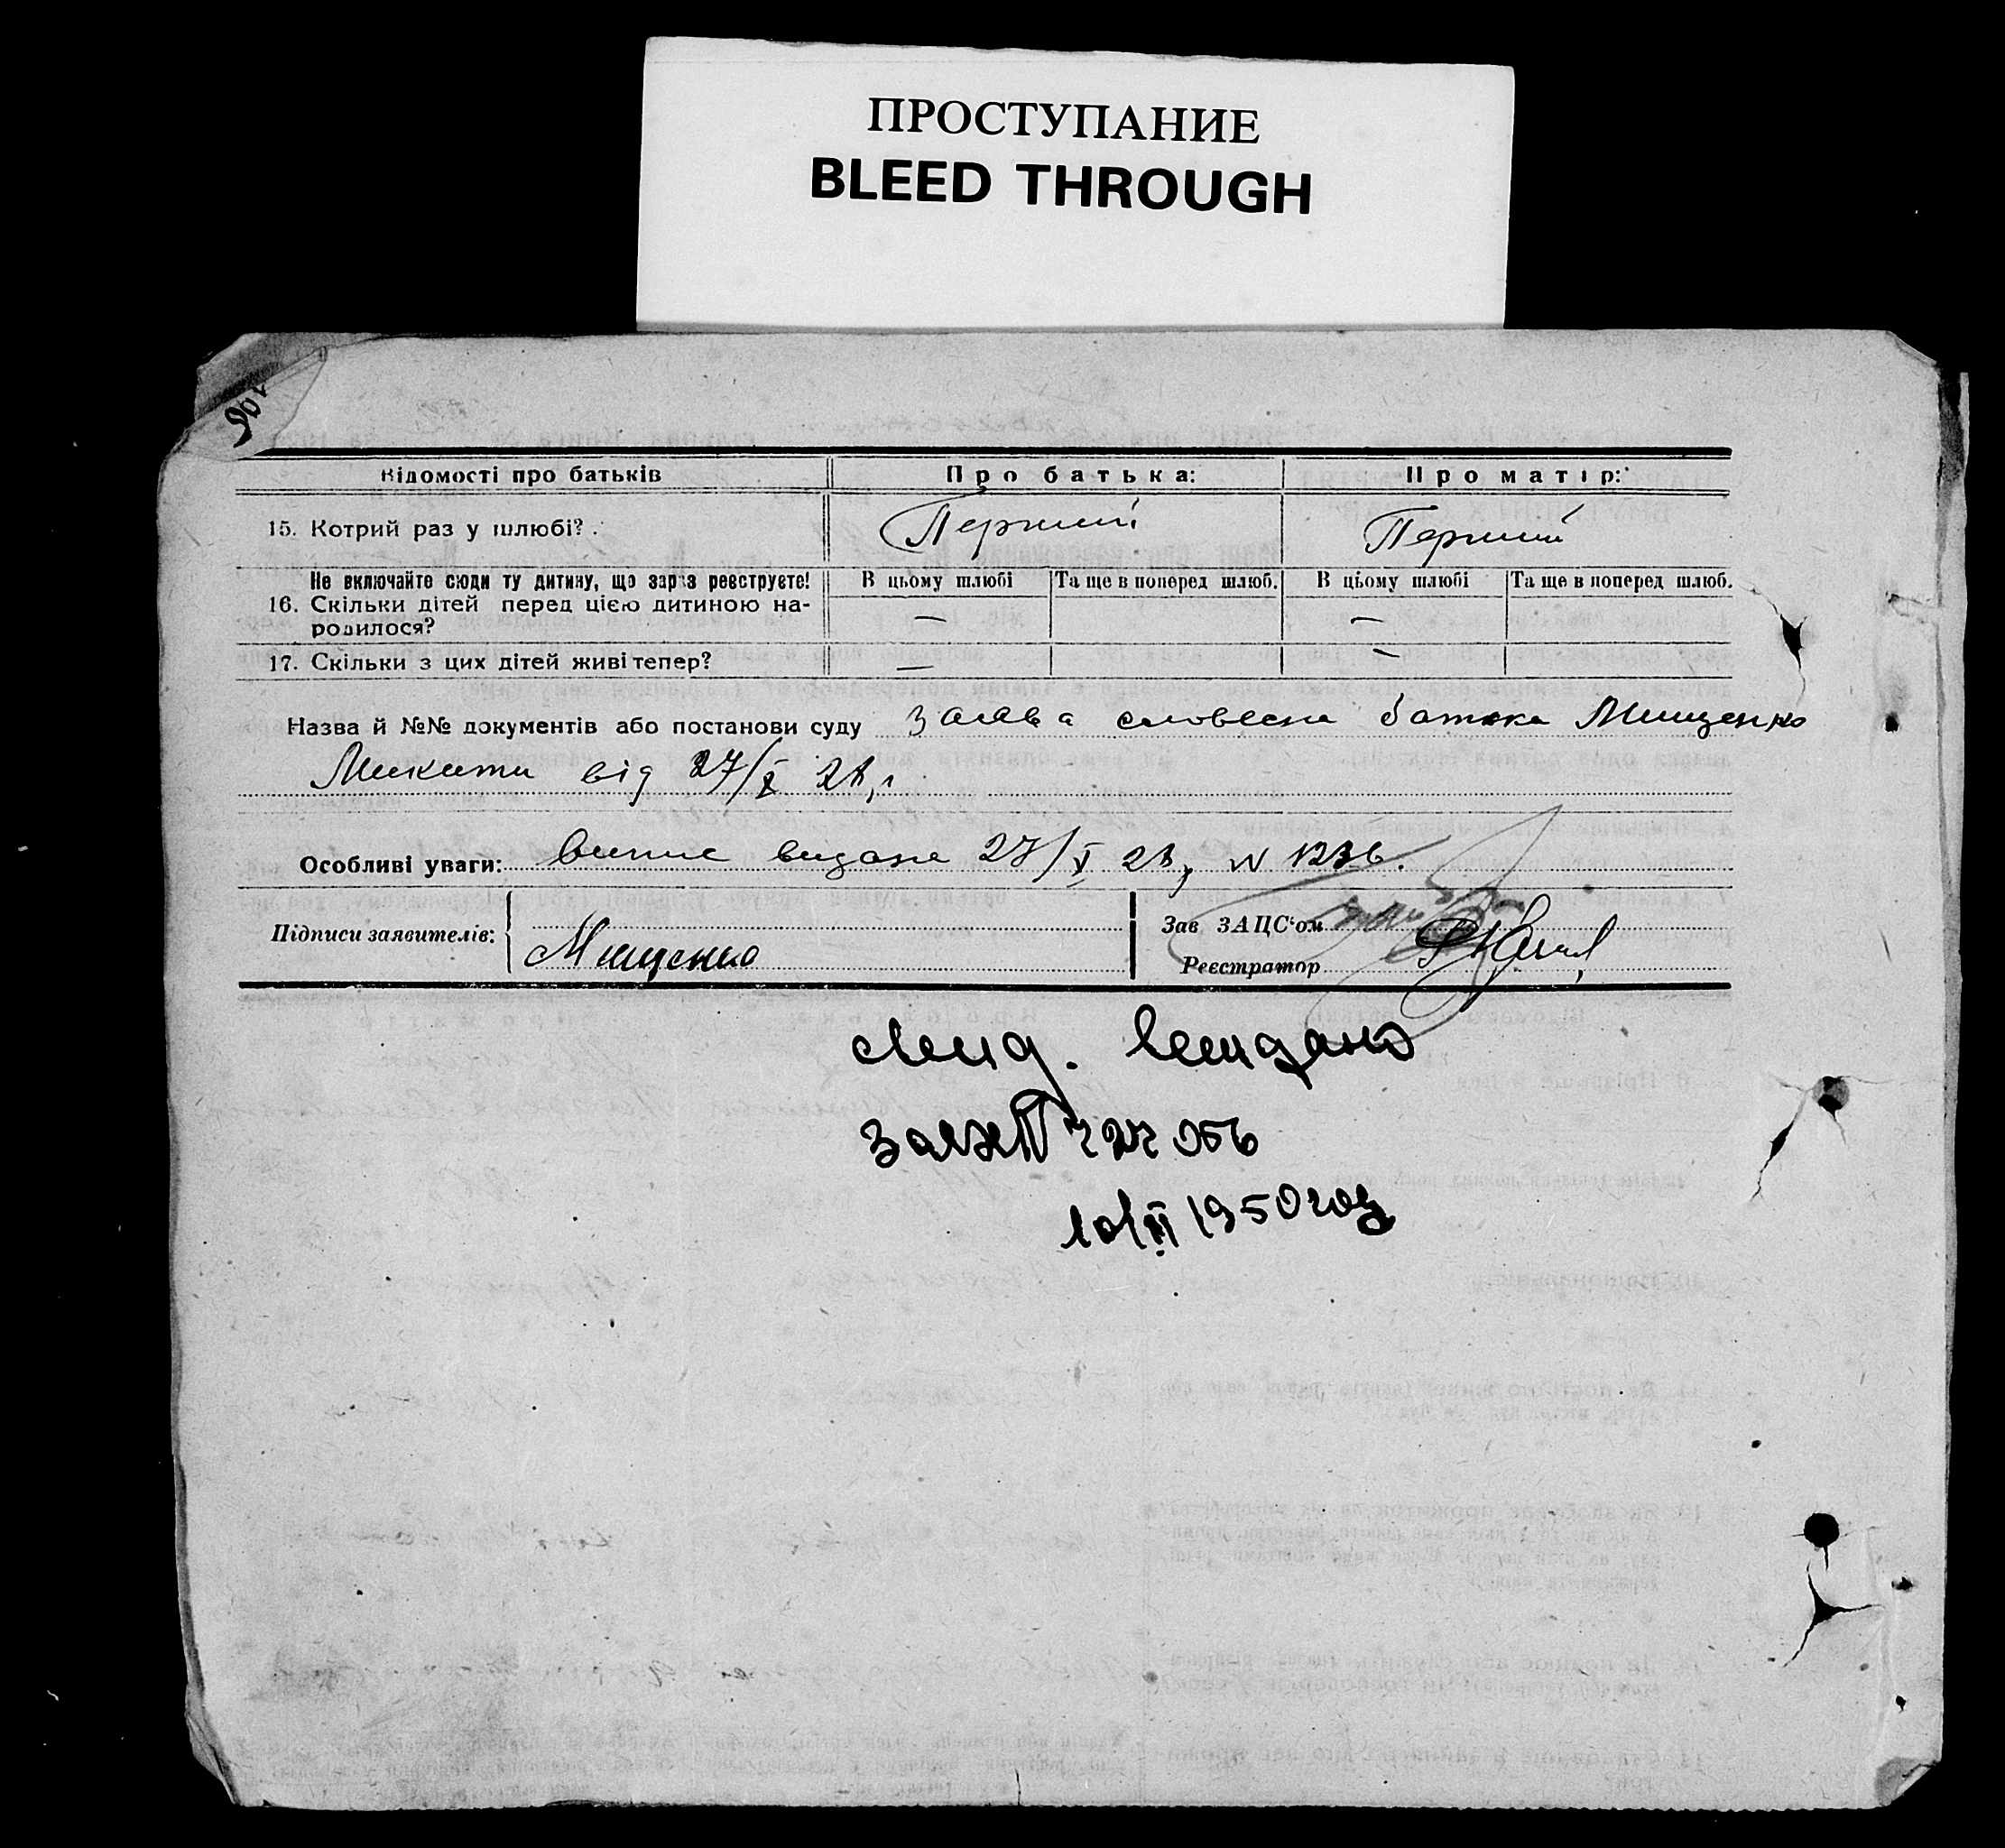 ПРОСТУПАНИЕ
BLEED THROUGH
Відомості про батьків
Про батька:
Про матір:
15. Котрий раз у шлюбі?
Перший
Перший
Не включайте сюди ту дитину, що зараз реєструєте!
В цьому шлюбі
Та ще в поперед шлюб.
В цьому шлюбі
Та ще в поперед шлюб.
16. Скільки дітей перед цією дитиною на-
родилося?
—
—
17. Скільки з цих дітей живі тепер?
—
—
Назва й №№ документів або постанови суду заява словесна батька Мищенко
Микити від 27/X 28 г
Особливі уваги: Випис видана 27/X 28, N 1236.
Підписи заявителів:
Мищенко
Зав ЗАЦС'ом
Реєстратор
видано
за
10/II 1950 год